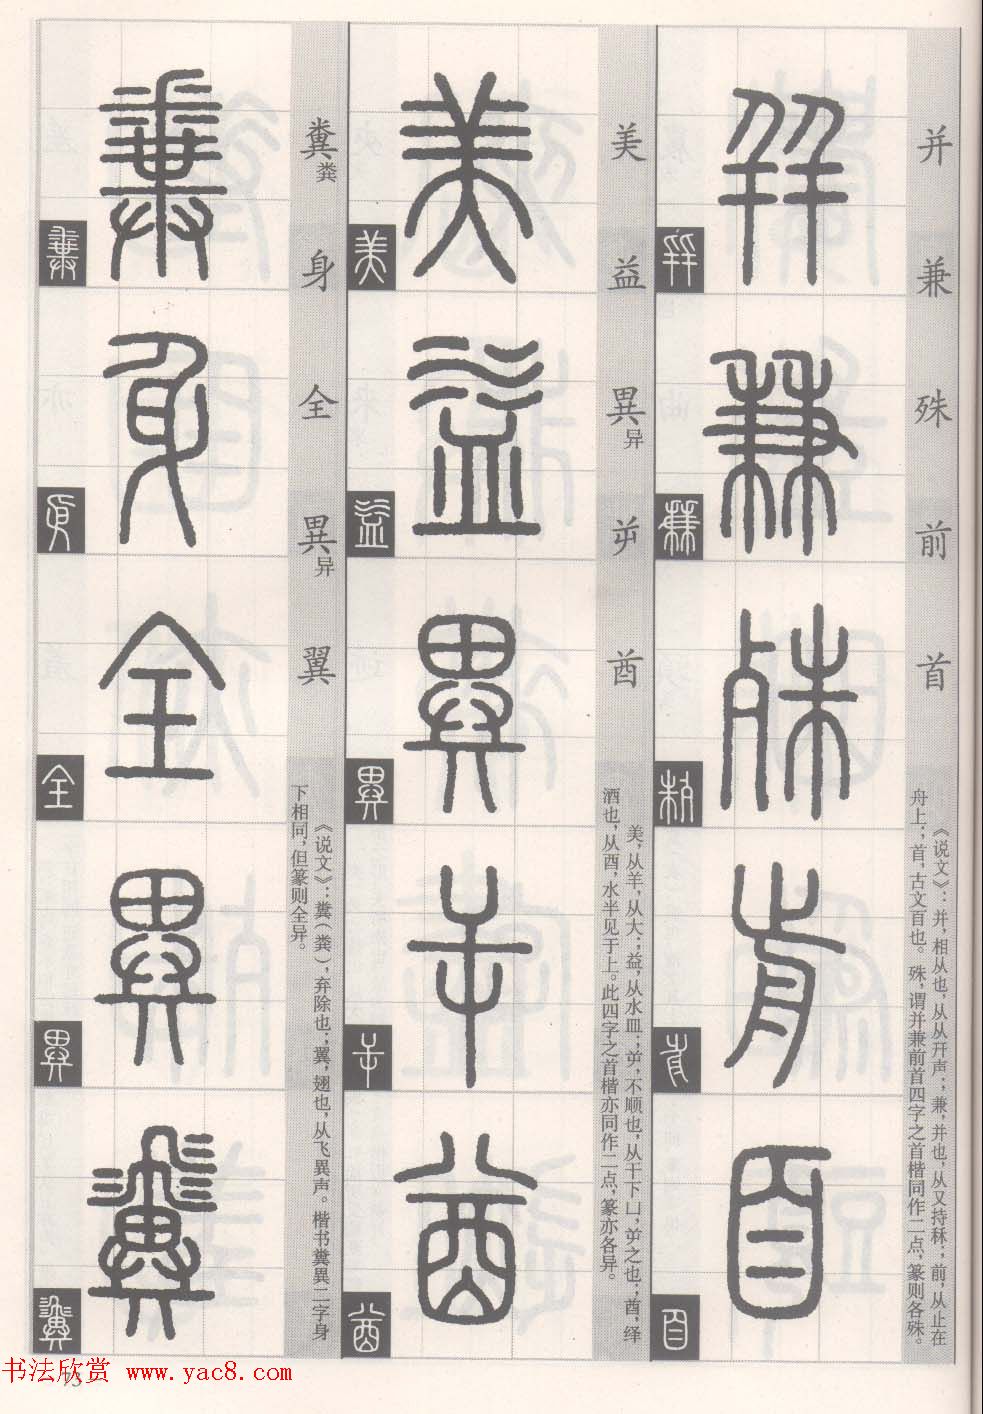 并 兼 殊 前 首
《说文》：并，相从也，从从幵声；兼，并也，从又持秝；前，从止在
舟上；首，古文百也。殊，谓并兼前首四字之首楷同作二点，篆则各殊。
美 益 異异 屰 酋
美，从羊，从大；益，从水皿；屰，不顺也，从干下凵，屰之也；酋，绎
酒也，从酉，水半见于上。此四字之首楷亦同作二点，篆亦各异。
糞粪 身 全 異异 翼
《说文》：糞（粪），弃除也；翼，翅也，从飞異声。楷书糞異二字身
下相同，但篆则全异。
书法欣赏 www.yac8.com
73